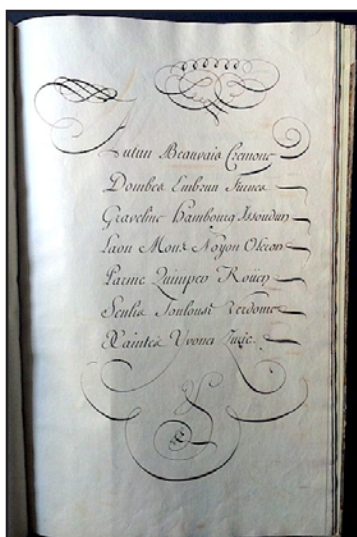 Autun Beauvais Cremone
Dombes Embrun
Graveline Hambourg Issoudun
Laon Mons Noyon Oleron
Parme Quimper Roüen
Senlis Toulouse
Xaintes Yvonet Zuric.